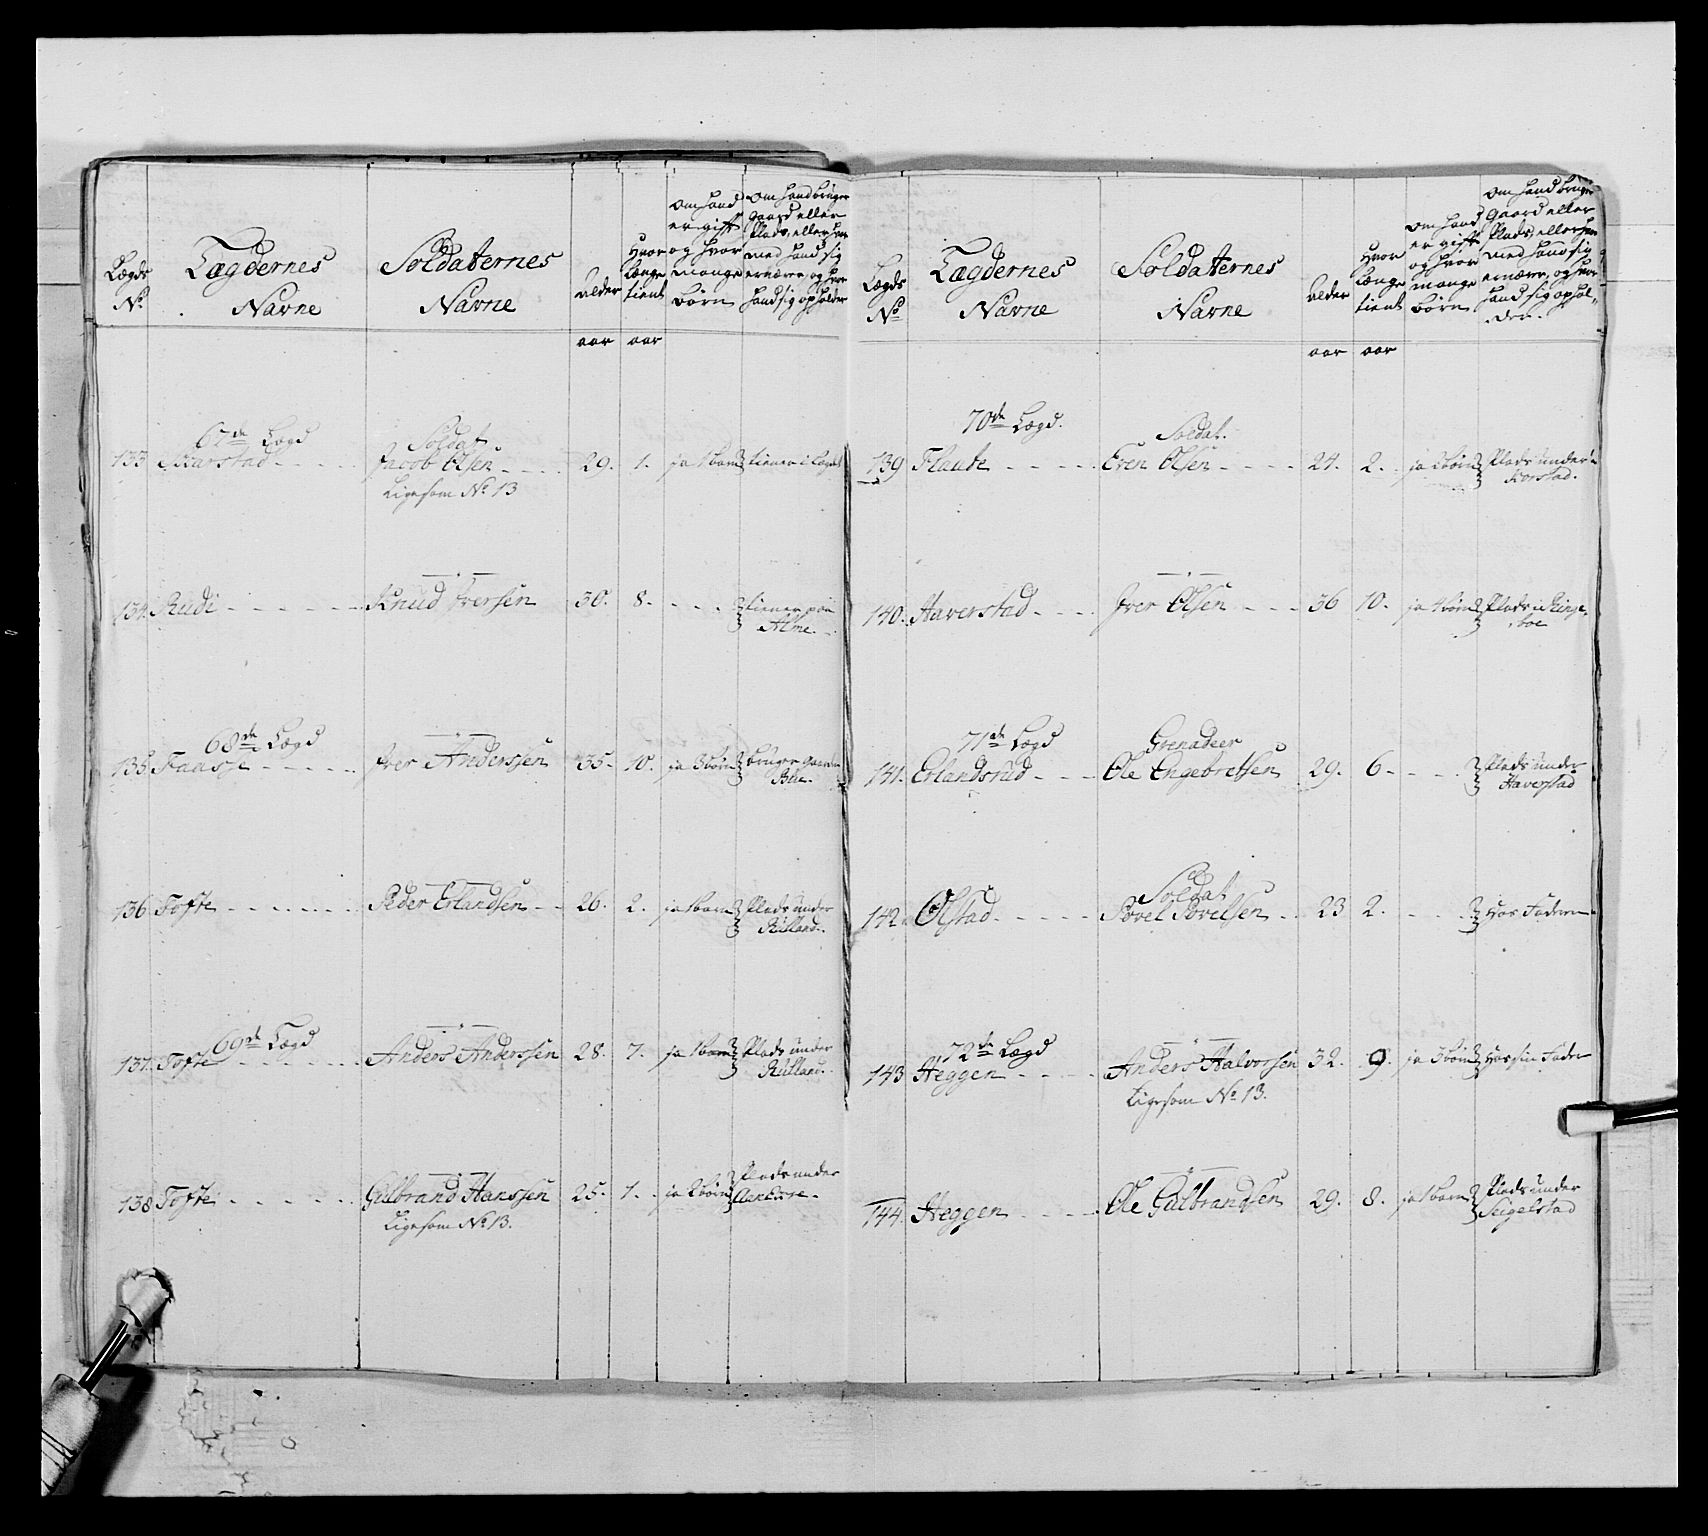 Lægds
No
Lægdernes
Navne
Soldaternes
Navne
alder
Hvor
længe
tient
om hand
er gift
og hvor
mange
Børn
om hand bruger
gaard eller
Plads, eller hvor
med hand sig
ernærer, og hvor
hand sig opholder
aar aar
67de Lægd
Soldat
133 Skarstad Jacob Olsen 29. 1. ja 1 barn tiener i Lægdet
Ligesom No 13
134. Rudi Knud Iversen 30. 8. tiener paa
Alme
68de Lægd
135 Faasse Iver Anderssen 35. 10. ja 3 børn bruger gaarden
Bue.
136 Tofte Peder Erlandsen 26. 2. ja 1 barn Plads under
Rülland.
69de Lægd
137. Tofte Anders Anderssen 28. 7. ja 1 barn Plads under
Rülland.
138 Tofte Gulbrand Hanssen 25. 1. ja 2 børn Plads under
Ligesom No 13.
Lægds
No
Lægdernes
Navne
Soldaternes
Navne
alder
Hvor
længe
tient
om hand
er gift
og hvor
mange
børn
om hand bruger
Gaard eller
Plads, eller hvor
med hand sig
ernærer, og hvor
hand sig ophol-
der.
aar aar
70de Lægd.
Soldat.
139 Flaate Even Olsen 24. 2. ja 2 børn Plads under
Korstad.
140. Haverstad Iver Olsen 36 10. ja 4 børn Plads i Ringe-
boe
71de Lægd
Grenadeer
141. Erlandsrud Ole Engebretsen 29. 6. Plads under
Haverstad
Soldat
142 Olstad Povel Povelsen 23 2. Hos Faderen
72de Lægd
143 Heggen Anders Halvorsen 32. 9. ja 3 børn Hos sin Fader
Ligesom No 13.
144. Heggen Ole Gulbrandsen 29. 8. ja 1 barn Plads under
Seigelstad